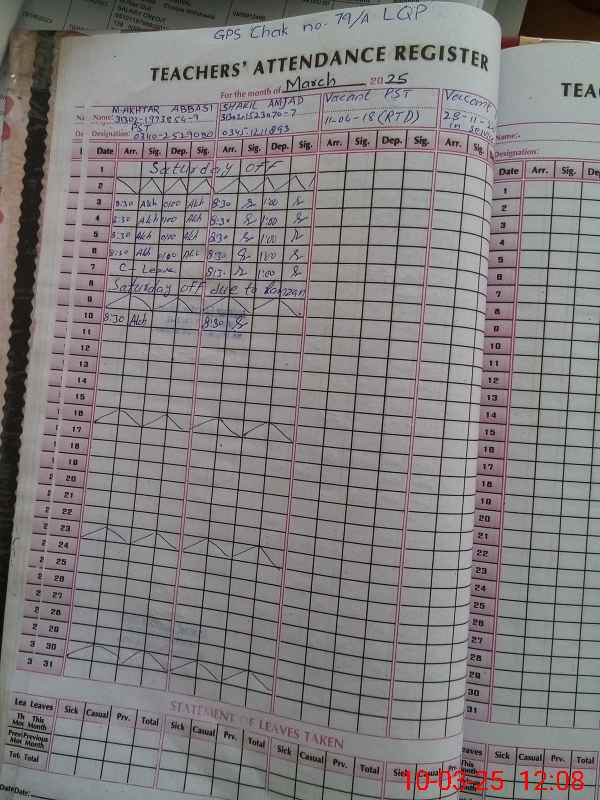 GPS Chak no. 79/A LQP
TEACHERS' ATTENDANCE REGISTER
For the month of March 2025
Name: MAKHTAR ABBASI SHAKIL AMJAD Vacant PST Vacant
11-06-18 (RTD)
Designation: PST
Date Arr. Sig. Dep. Sig. Arr. Sig. Dep. Sig. Arr. Sig. Dep. Sig. Arr. Sig.
1 Saturday off
2
3 8:30 Akh 1:00 Akh 8:30 1:00
4 8:30 Akh 1:00 Akh 8:30 1:00
5 8:30 Akh 1:00 Akh 8:30 1:00
6 8:30 Akh 1:00 Akh 8:30 1:00
7 C-Leave 8:30 1:00
8 Saturday off due to Ramzan
9
10 8:30 Akh 8:30
11
12
13
14
15
16
17
18
19
20
21
22
23
24
25
26
27
28
29
30
31
STATEMENT OF LEAVES TAKEN
Leaves Sick Casual Prv. Total Sick Casual Prv. Total Sick Casual Prv. Total Sick Casual Prv.
This Month
Previous Month
Total
Date:
TEA
Name:
Designation:
Date Arr. Sig. De
1
2
3
4
5
6
7
8
9
10
11
12
13
14
15
16
17
18
19
20
21
22
23
24
25
26
27
28
29
30
31
Leaves Sick Casual Prv. Total
This Month
Previous Month
Total
10-03-25 12:08